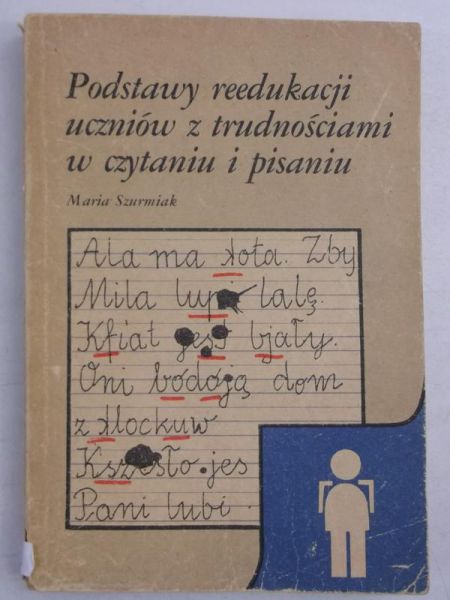 Podstawy reedukacji
uczniów z trudnościami
w czytaniu i pisaniu
Maria Szurmiak
Ala ma kota. Zby
Mila lupi lalę.
Kfiat jest bjały.
Oni bódóją dom
z kłockuw
Kszesło jes
Pani lubi